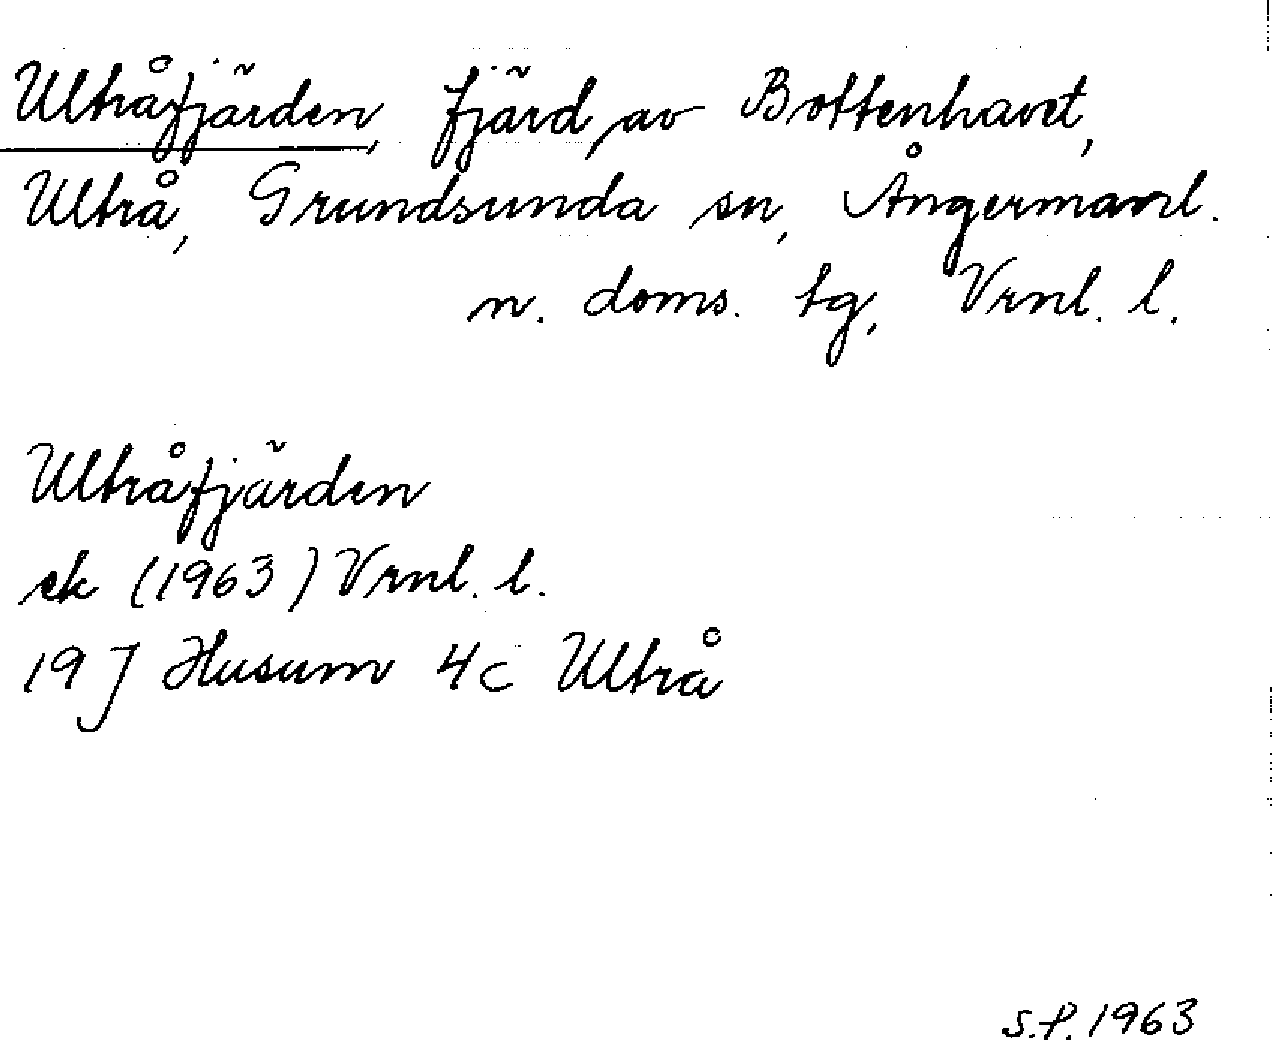 Ultråfjärden, fjärd av Bottenhavet,
Ultrå, Grundsunda sn, Ångermanl.
n. doms. tg, Vrnl. l.
Ultråfjärden
ek (1963) Vrnl. l.
19 J Husum 4c Ultrå
S.P. 1963